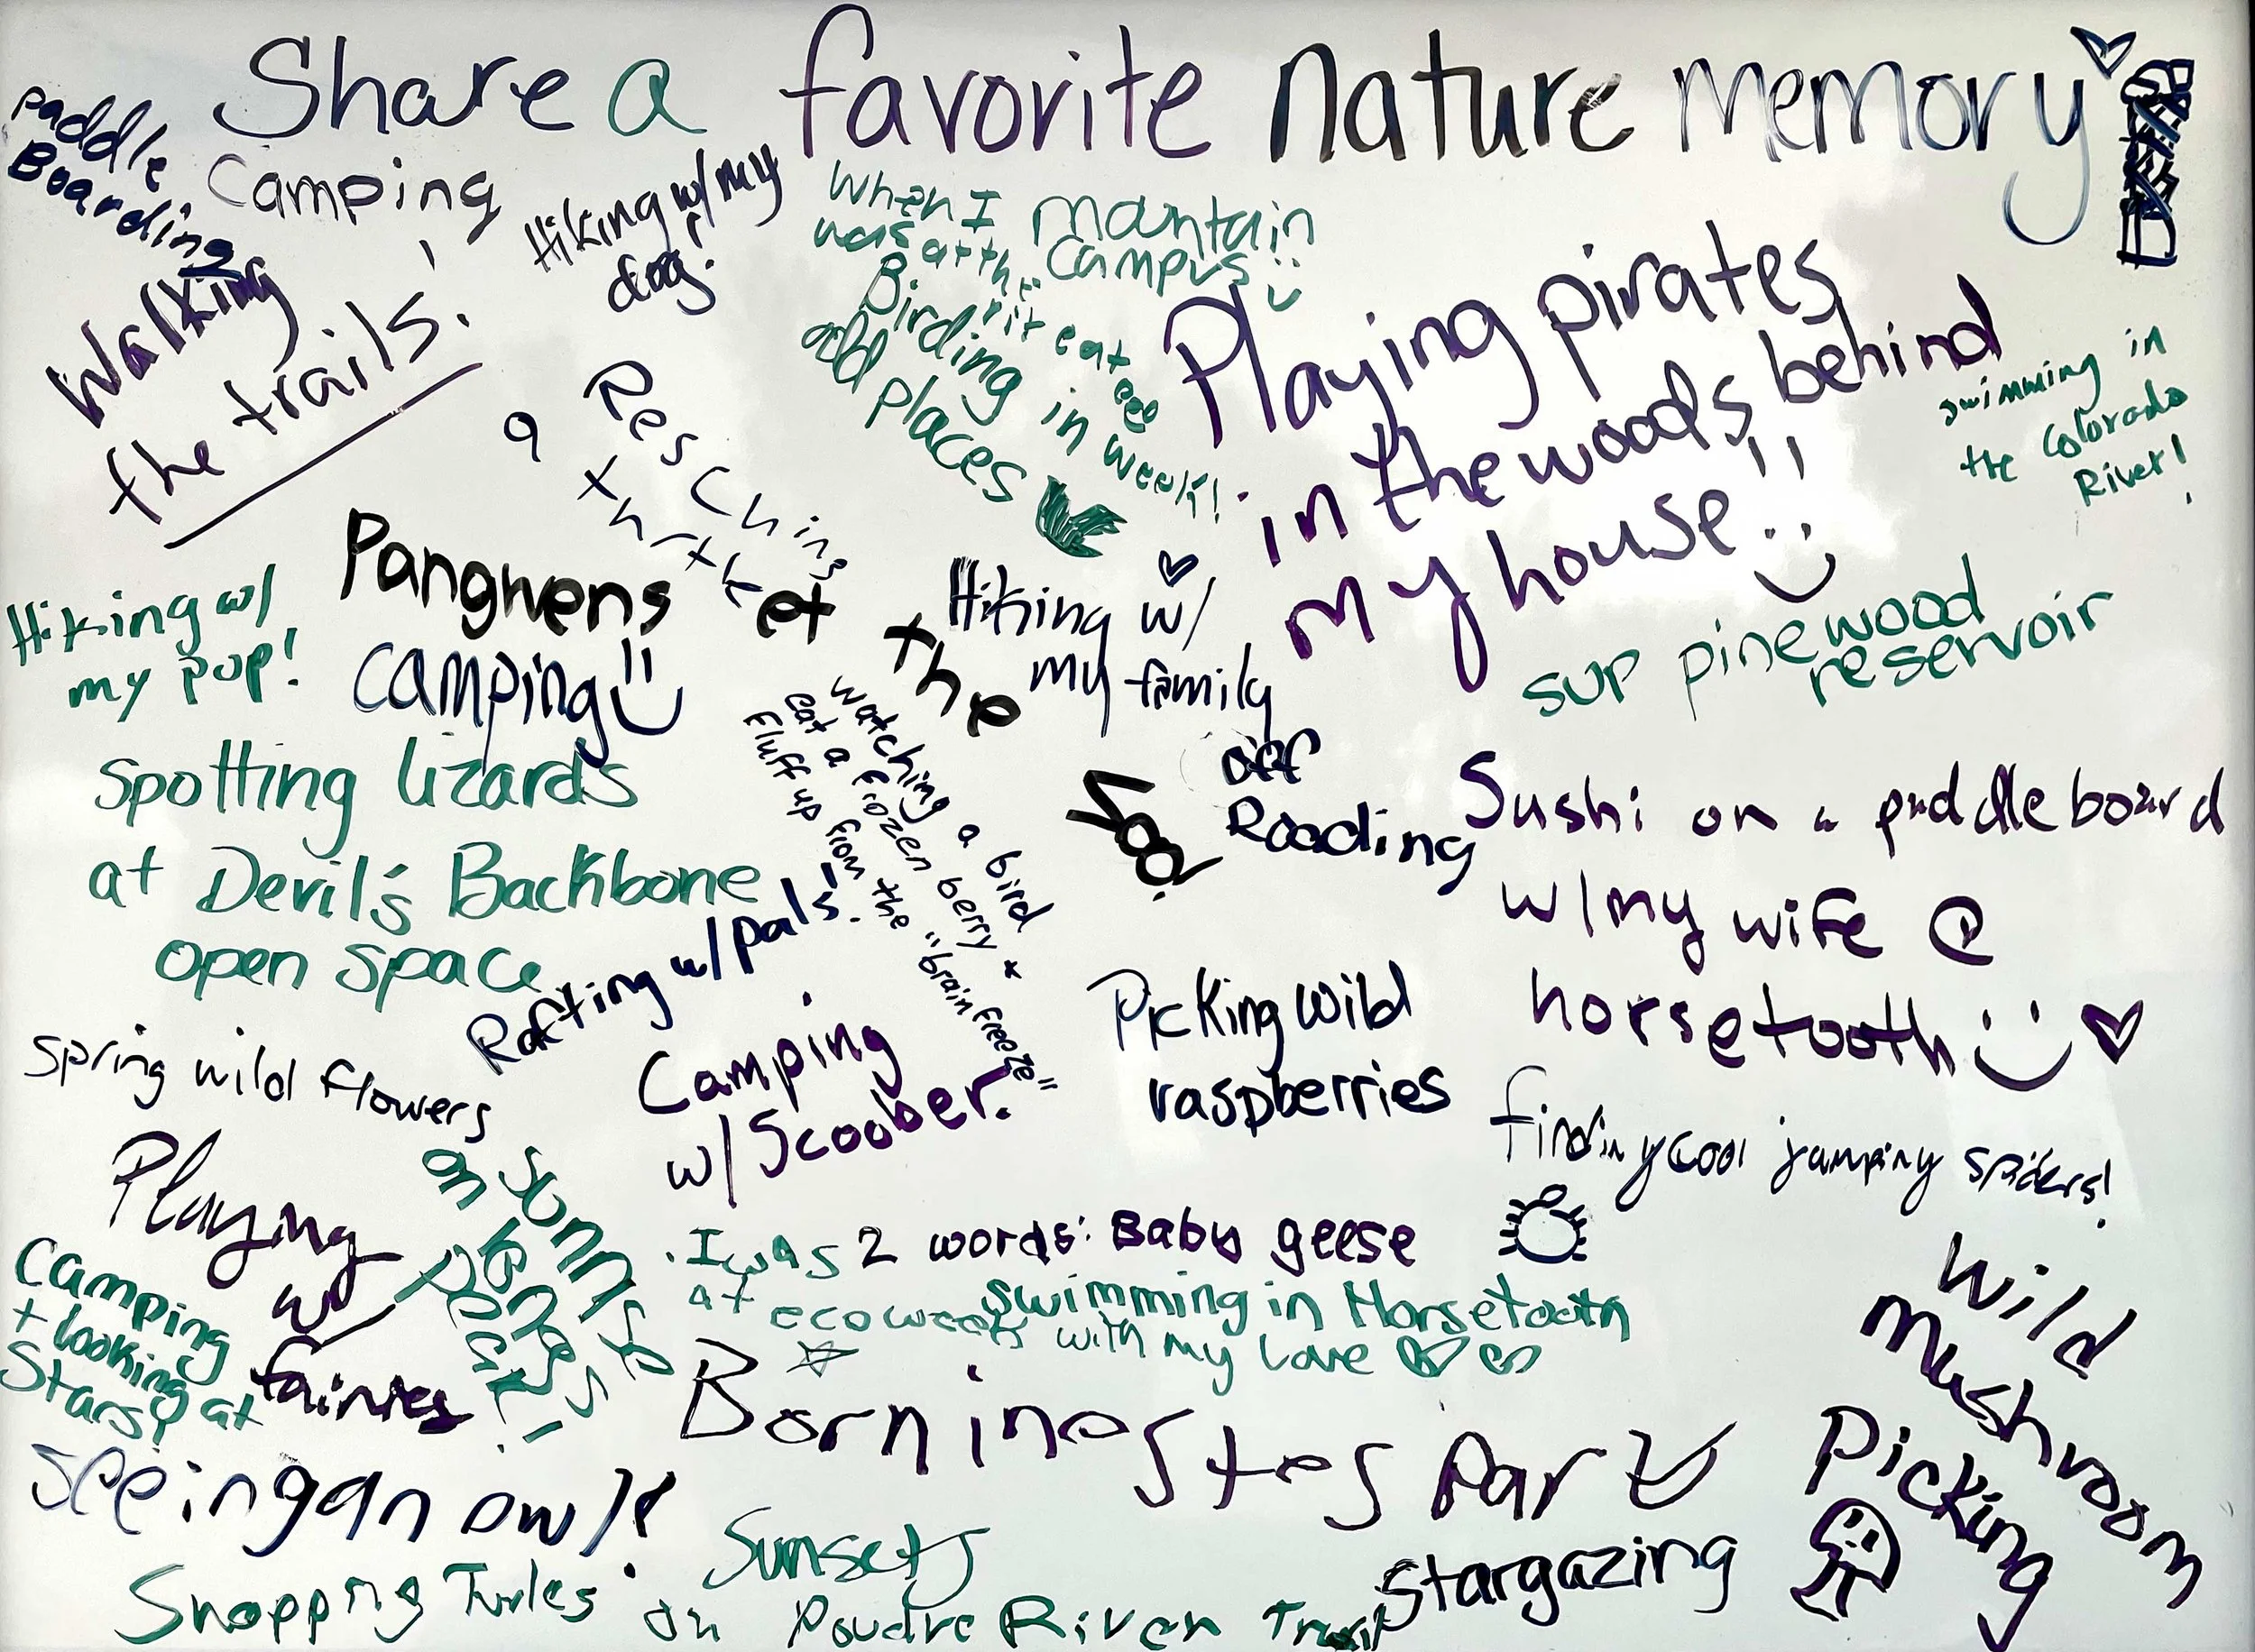 Share a favorite nature memory
Paddle
Boarding
Camping
Hiking w/ my
dog!
When I
was at the
mantain
campus
Birding in
odd places
eco
week!
Walking
the trails!
Playing pirates
in the woods behind
my house!!
swimming in
the Colorado
River!
Resching
a
et the
Zoo!
Pangwens
camping!!
Hiking w/
my pop!
Hiking w/
my family
sup pinewood
reservoir
Spotting lizards
at Devil's Backbone
open space
watching a bird
eat a frozen berry *
fluff up from the "brain freeze"
off
Roading
Sushi on a paddle board
w/my wife @
horsetooth
Rafting w/pals!
Spring wild flowers
Camping
w/Scoober.
Picking wild
raspberries
finding cool jumping spiders!
Playing
w/
fairies
on
sunny
Camping
+ looking at
Stars!
2 words: Baby geese
I was
at ecoweek
swimming in Horsetooth
with my love
Born in estes park
Wild
mushroom
Picking
seeing an owl!
Sunsets
on Poudre River Trail
Snapping Turles
Stargazing